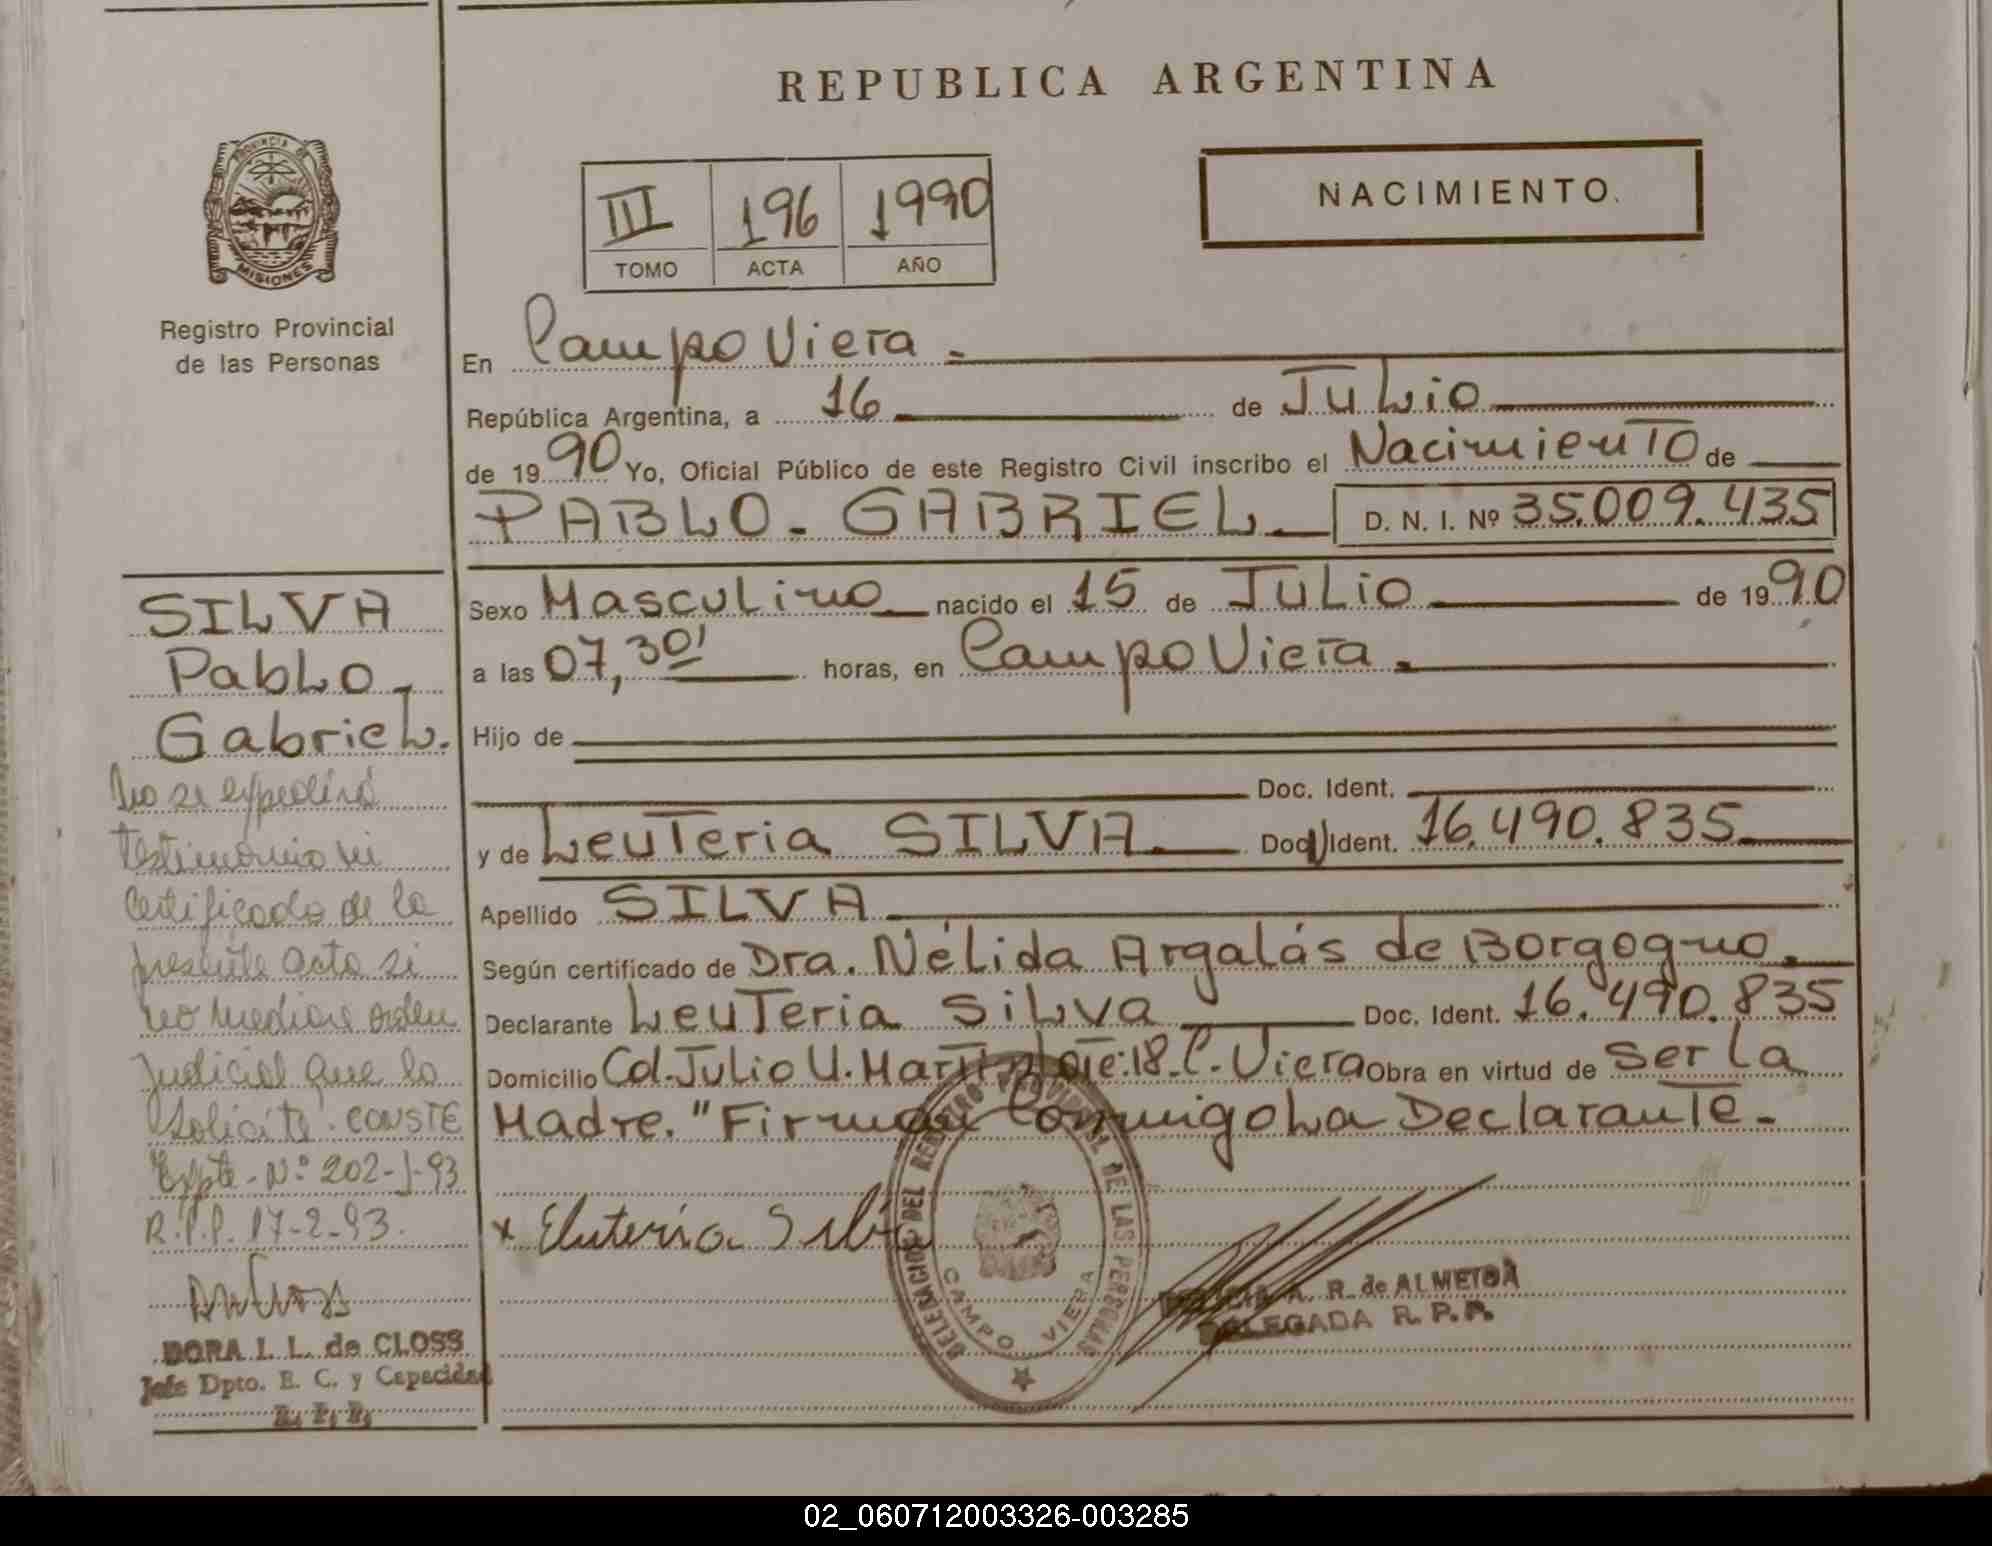 REPUBLICA ARGENTINA
PROVINCIA DE
MISIONES
Registro Provincial
de las Personas
NACIMIENTO.
III 196 1990
TOMO ACTA AÑO
En Campo Viera -
República Argentina, a 16 de Julio
de 1990 Yo, Oficial Público de este Registro Civil inscribo el Nacimiento de
PABLO - GABRIEL D. N. I. Nº 35.009.435
Sexo Masculino nacido el 15 de Julio de 1990
a las 07,30' horas, en Campo Viera.
Hijo de
Doc. Ident.
y de Leuteria SILVA Doc. Ident. 16.490.835
Apellido SILVA
Según certificado de Dra. Nélida Argalás de Borgogno.
Declarante Leuteria Silva Doc. Ident. 16.490.835
Domicilio Cd. Julio U. Martin Lote:18. C. Viera Obra en virtud de Ser la
Madre. "Firman Conmigo La Declarante -
x Eluteria Silva
DELEGACION DEL REGISTRO PROVINCIAL DE LAS PERSONAS
CAMPO VIERA
A. R. de ALMEIDA
DELEGADA R. P. P.
SILVA
Pablo -
Gabriel.
No se expedirá
testimonio ni
certificado de la
presente acta si
no mediare orden
judicial que lo
solicite. CONSTE
Expte - Nº 202-J-93
R.P.P. 17-2-93.
DORA L. L. de CLOSS
Jefe Dpto. E. C. y Capacidad
R. P. P.
02_060712003326-003285